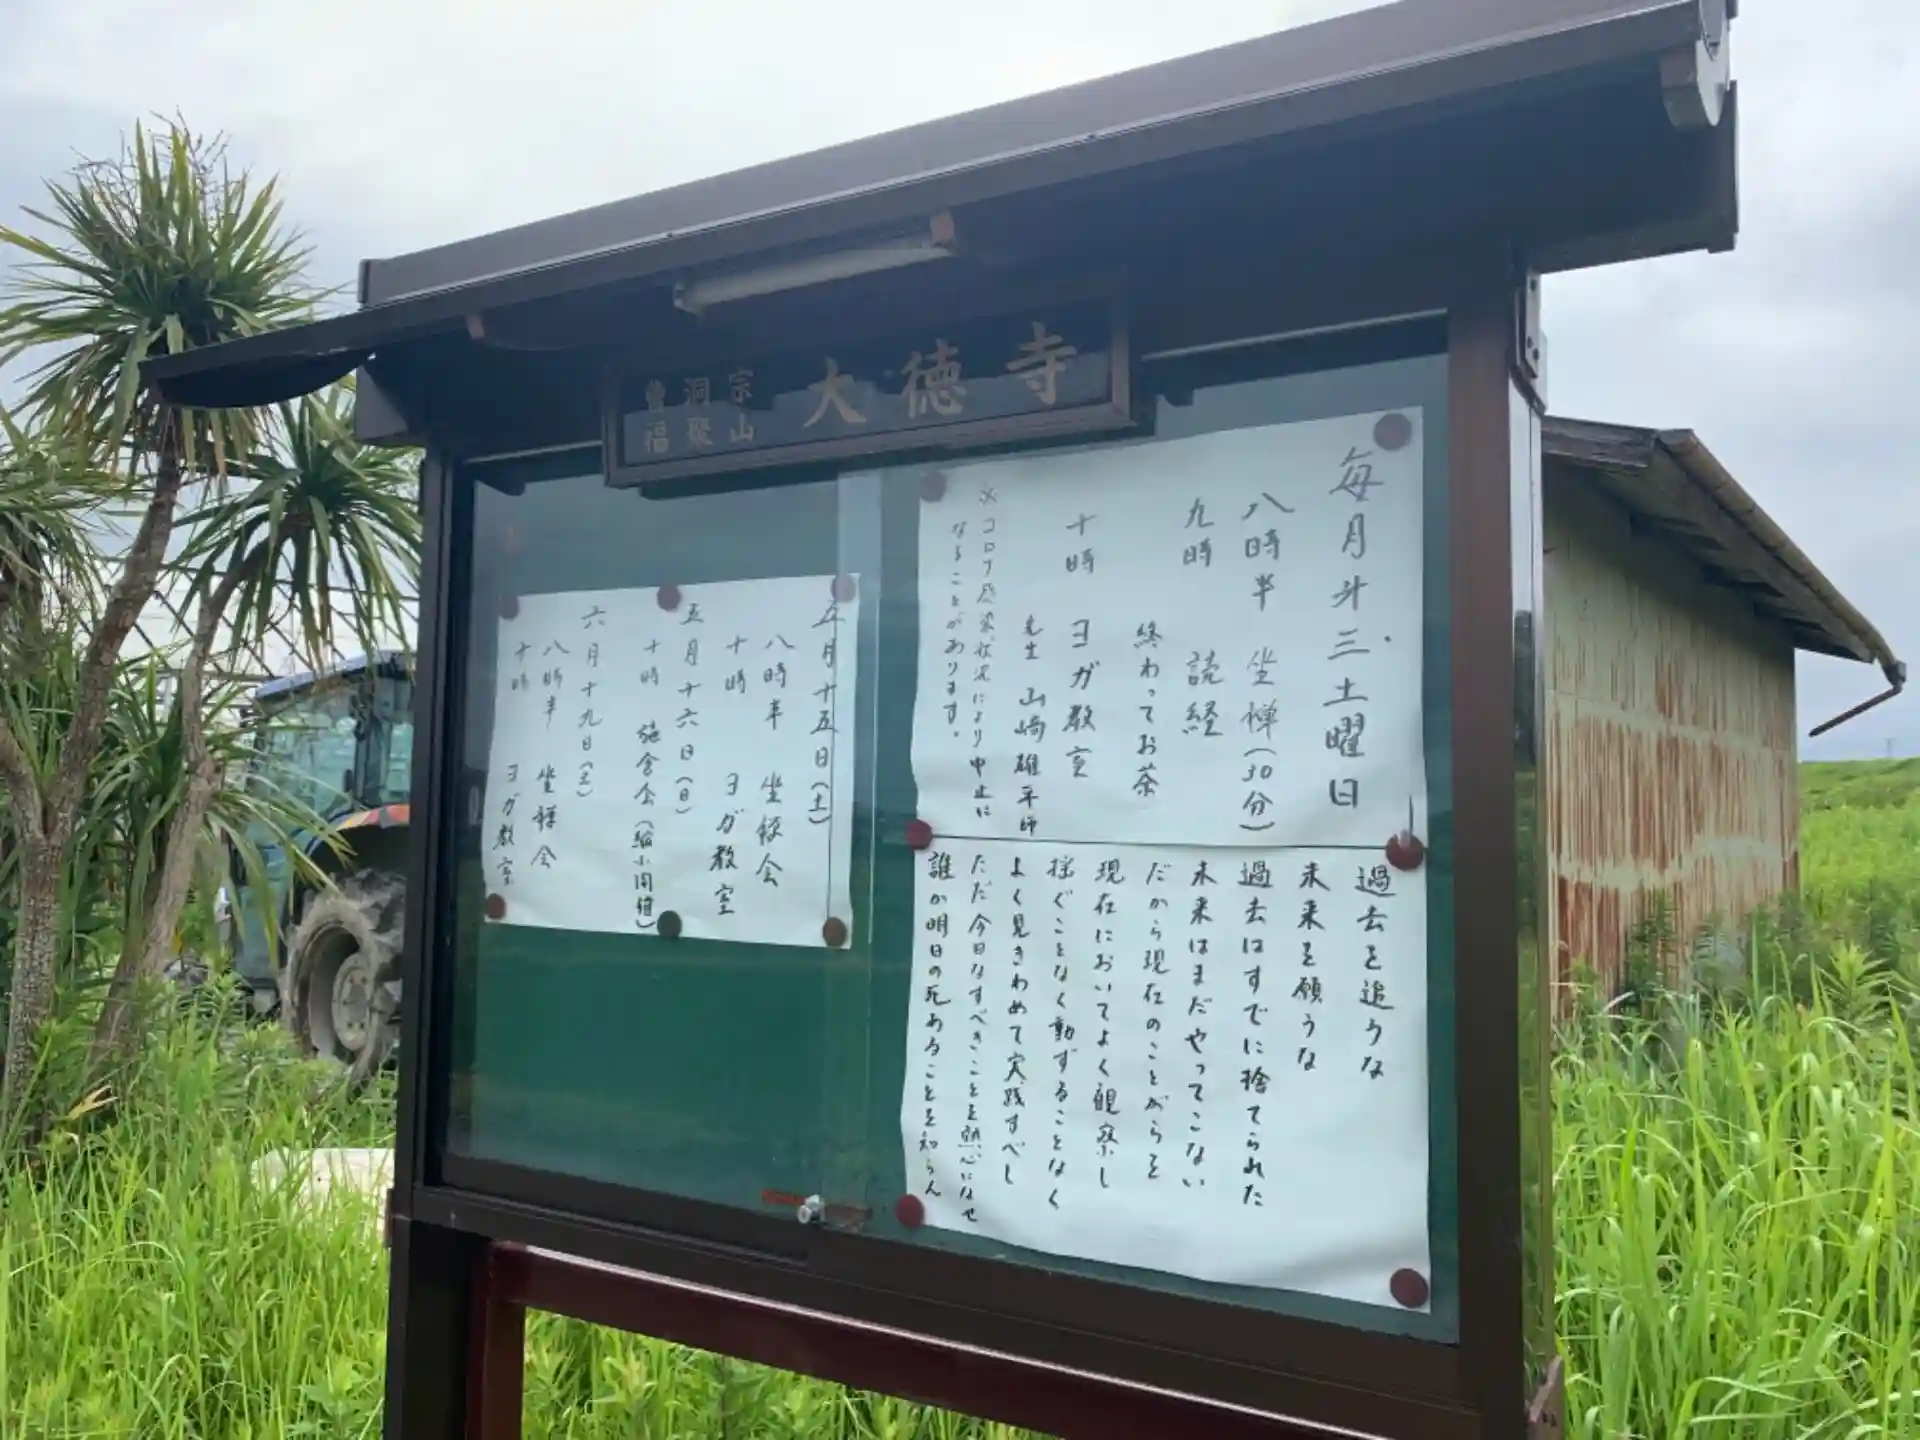 曹洞宗
福聚山
大徳寺
毎月第三土曜日
八時半 坐禅(30分)
九時 読経
終わってお茶
十時 ヨガ教室
先生 山崎雄平師
※コロナ感染状況により中止に
なることがあります。
過去を追うな
未来を願うな
過去はすでに捨てられた
未来はまだやってこない
だから現在のことがらを
現在においてよく観察し
揺ぐことなく動ずることなく
よく見きわめて実践すべし
ただ今日なすべきことを熱心になせ
誰か明日の死あることを知らん
五月十五日(土)
八時半 坐禅会
十時 ヨガ教室
五月十六日(日)
十時 施食会(縮小開催)
六月十九日(土)
八時半 坐禅会
十時 ヨガ教室